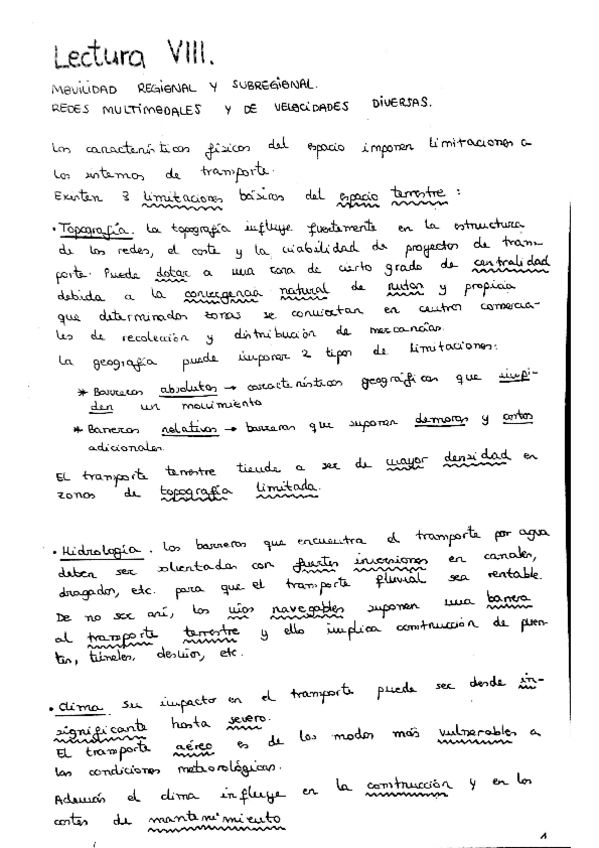 Lectura VIII.
MOVILIDAD REGIONAL Y SUBREGIONAL.
REDES MULTIMODALES Y DE VELOCIDADES DIVERSAS.
Las características físicas del espacio imponen limitaciones a
los sistemas de transporte.
Existen 3 limitaciones básicas del espacio terrestre:
• Topografía. La topografía influye fuertemente en la estructura
de las redes, el coste y la viabilidad de proyectos de trans-
porte. Puede dotar a una zona de cierto grado de centralidad
debida a la convergencia natural de rutas y propicia
que determinadas zonas se conviertan en centros comercia-
les de recolección y distribución de mercancías.
La geografía puede imponer 2 tipos de limitaciones:
* Barreras absolutas → características geográficas que impi-
den un movimiento
* Barreras relativas → barreras que suponen demoras y costos
adicionales.
El transporte terrestre tiende a ser de mayor densidad en
zonas de topografía limitada.
• Hidrología. Las barreras que encuentra el transporte por agua
deben ser solventadas con fuertes inversiones en canales,
dragados, etc. para que el transporte fluvial sea rentable.
De no ser así, los ríos navegables suponen una barrera
al transporte terrestre y ello implica construcción de puen-
tes, túneles, desvíos, etc.
• Clima. Su impacto en el transporte puede ser desde in-
significante hasta severo.
El transporte aéreo es de los modos más vulnerables a
las condiciones meteorológicas.
Además el clima influye en la construcción y en los
costes de mantenimiento
1